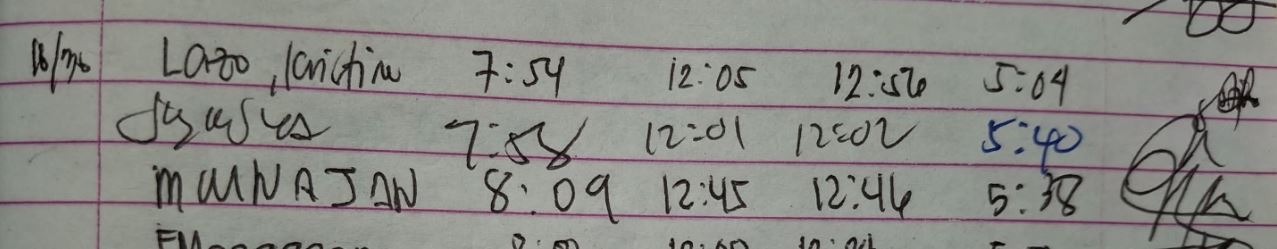 Lazo, Kristine 7:54 12:05 12:56 5:04
7:58 12:01 12:02 5:40
MUNAJAN 8:09 12:45 12:46 5:38